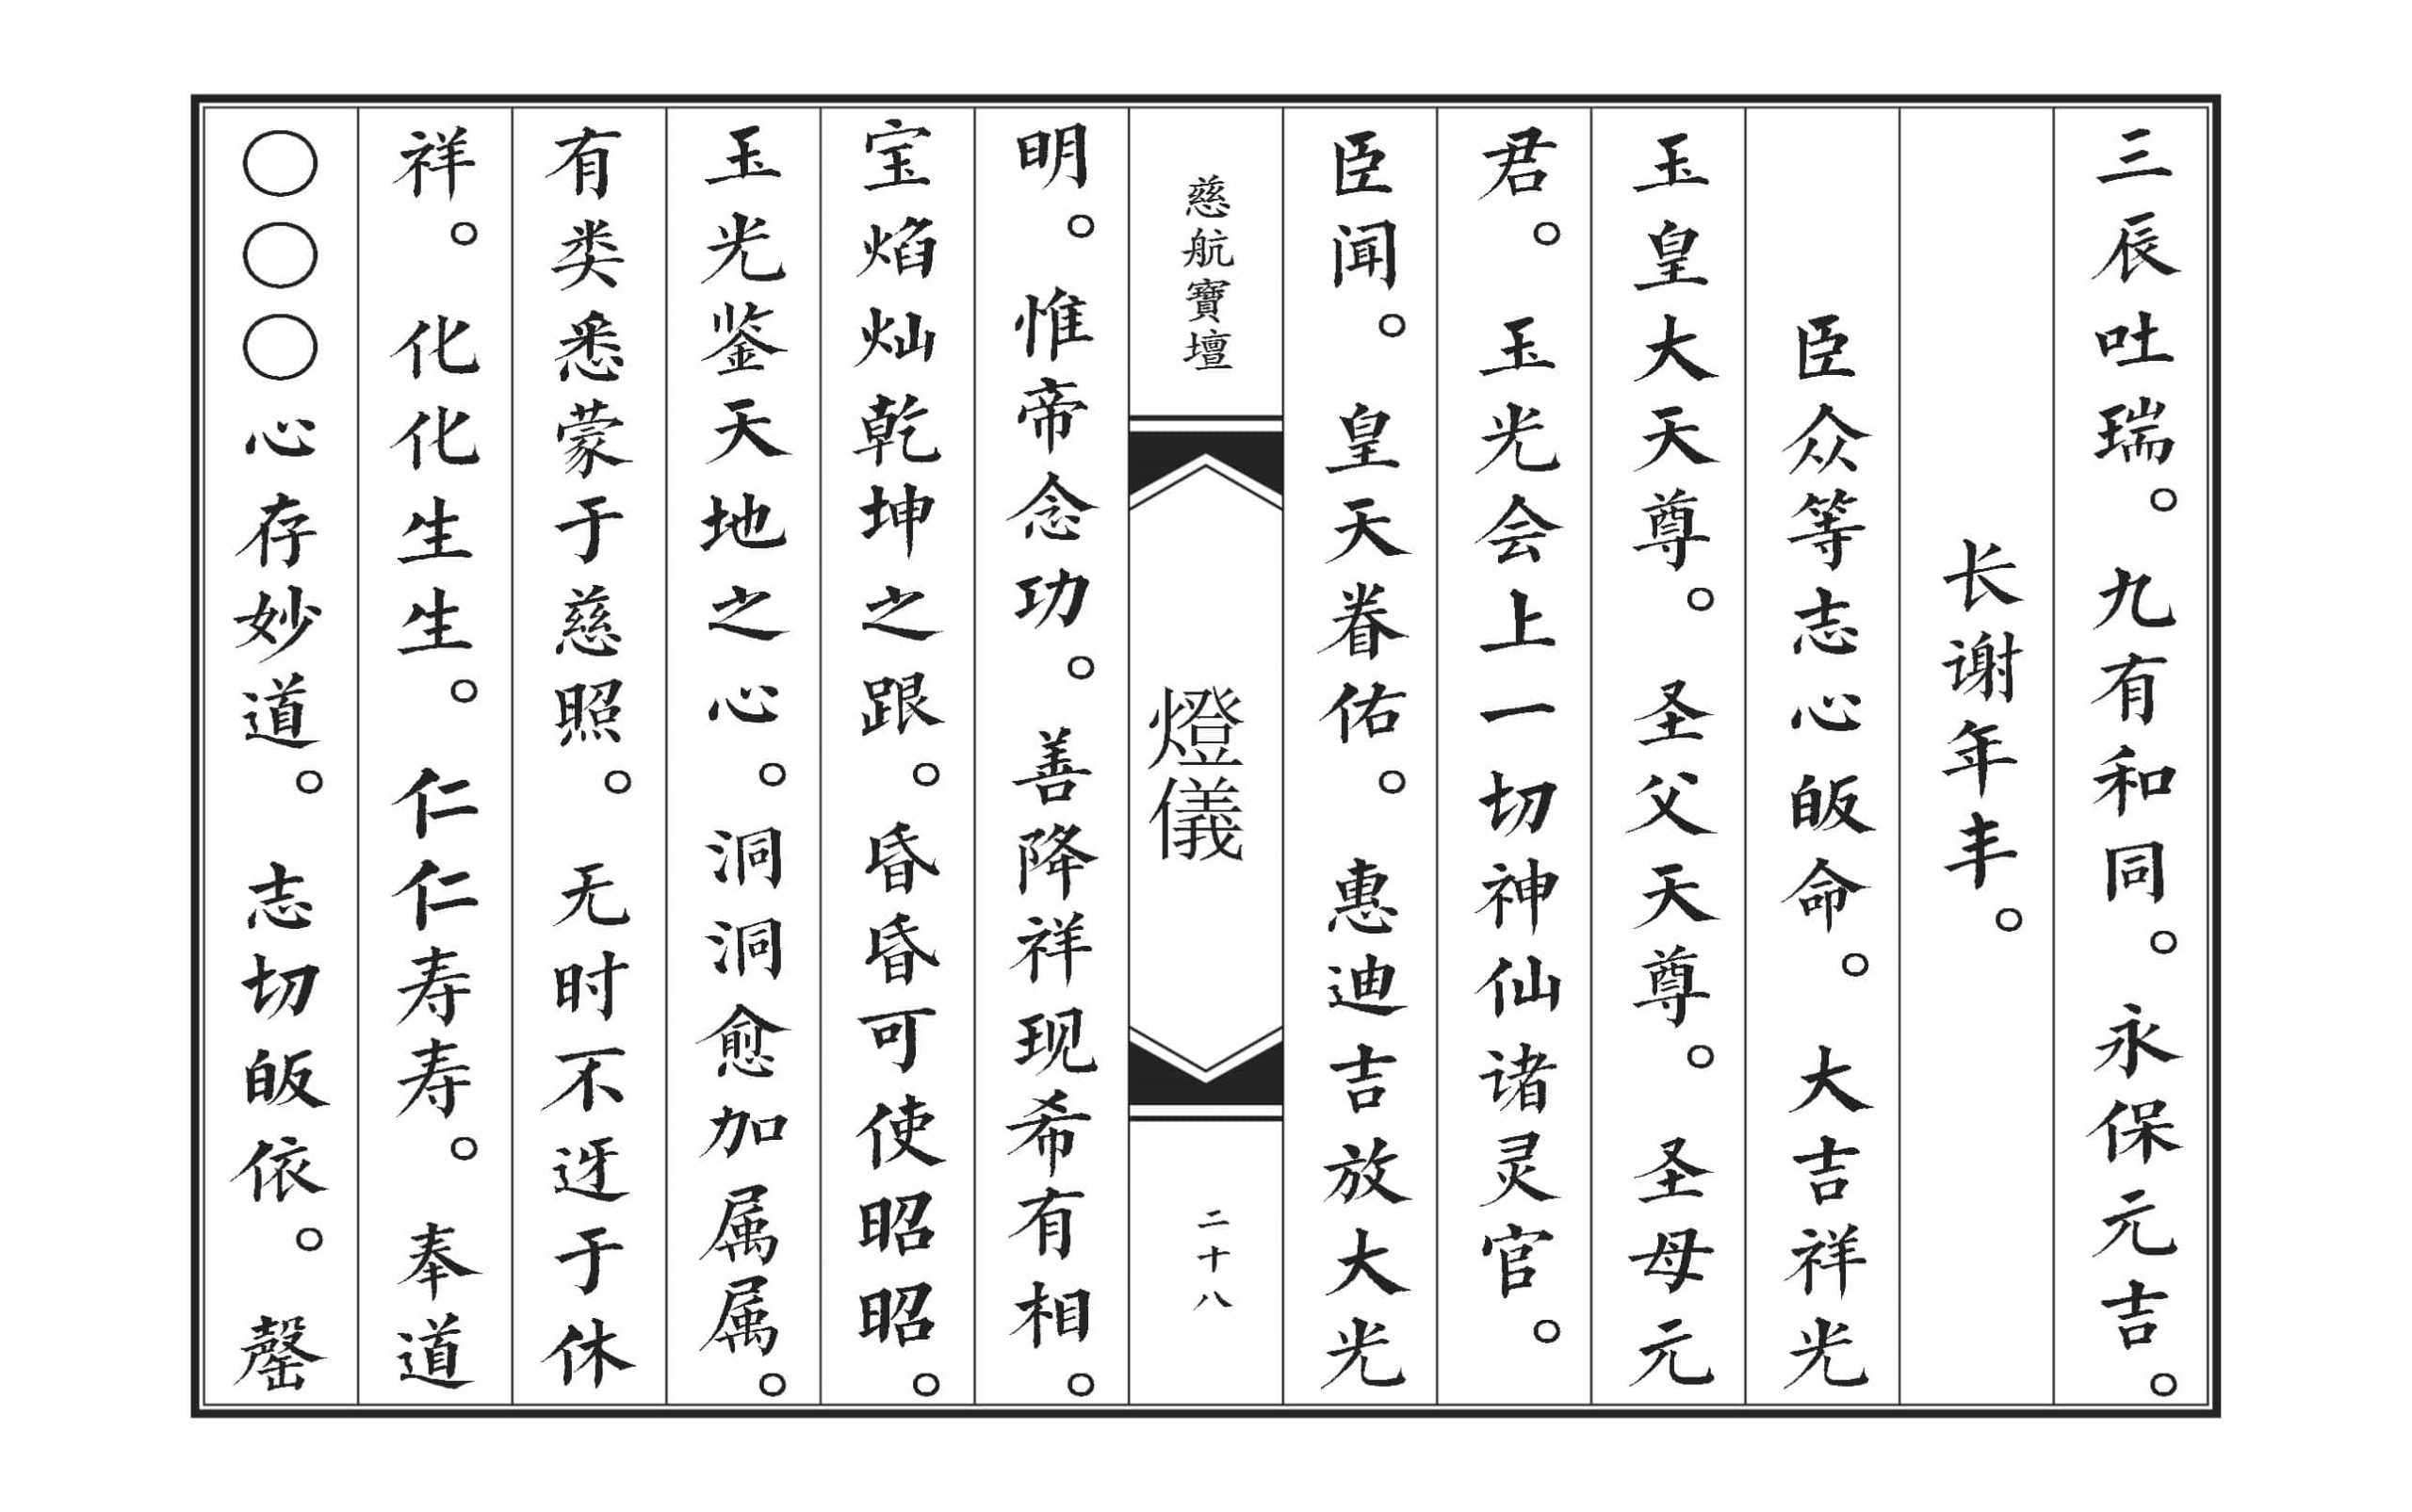 三辰吐瑞。九有和同。永保元吉。
长谢年丰。
臣众等志心皈命。大吉祥光
玉皇大天尊。圣父天尊。圣母元
君。玉光会上一切神仙诸灵官。
臣闻。皇天眷佑。惠迪吉放大光
慈航寶壇
燈儀
二十八
明。惟帝念功。善降祥现希有相。
宝焰灿乾坤之跟。昏昏可使昭昭。
玉光鉴天地之心。洞洞愈加属属。
有类悉蒙于慈照。无时不迓于休
祥。化化生生。仁仁寿寿。奉道
〇〇〇心存妙道。志切皈依。罄